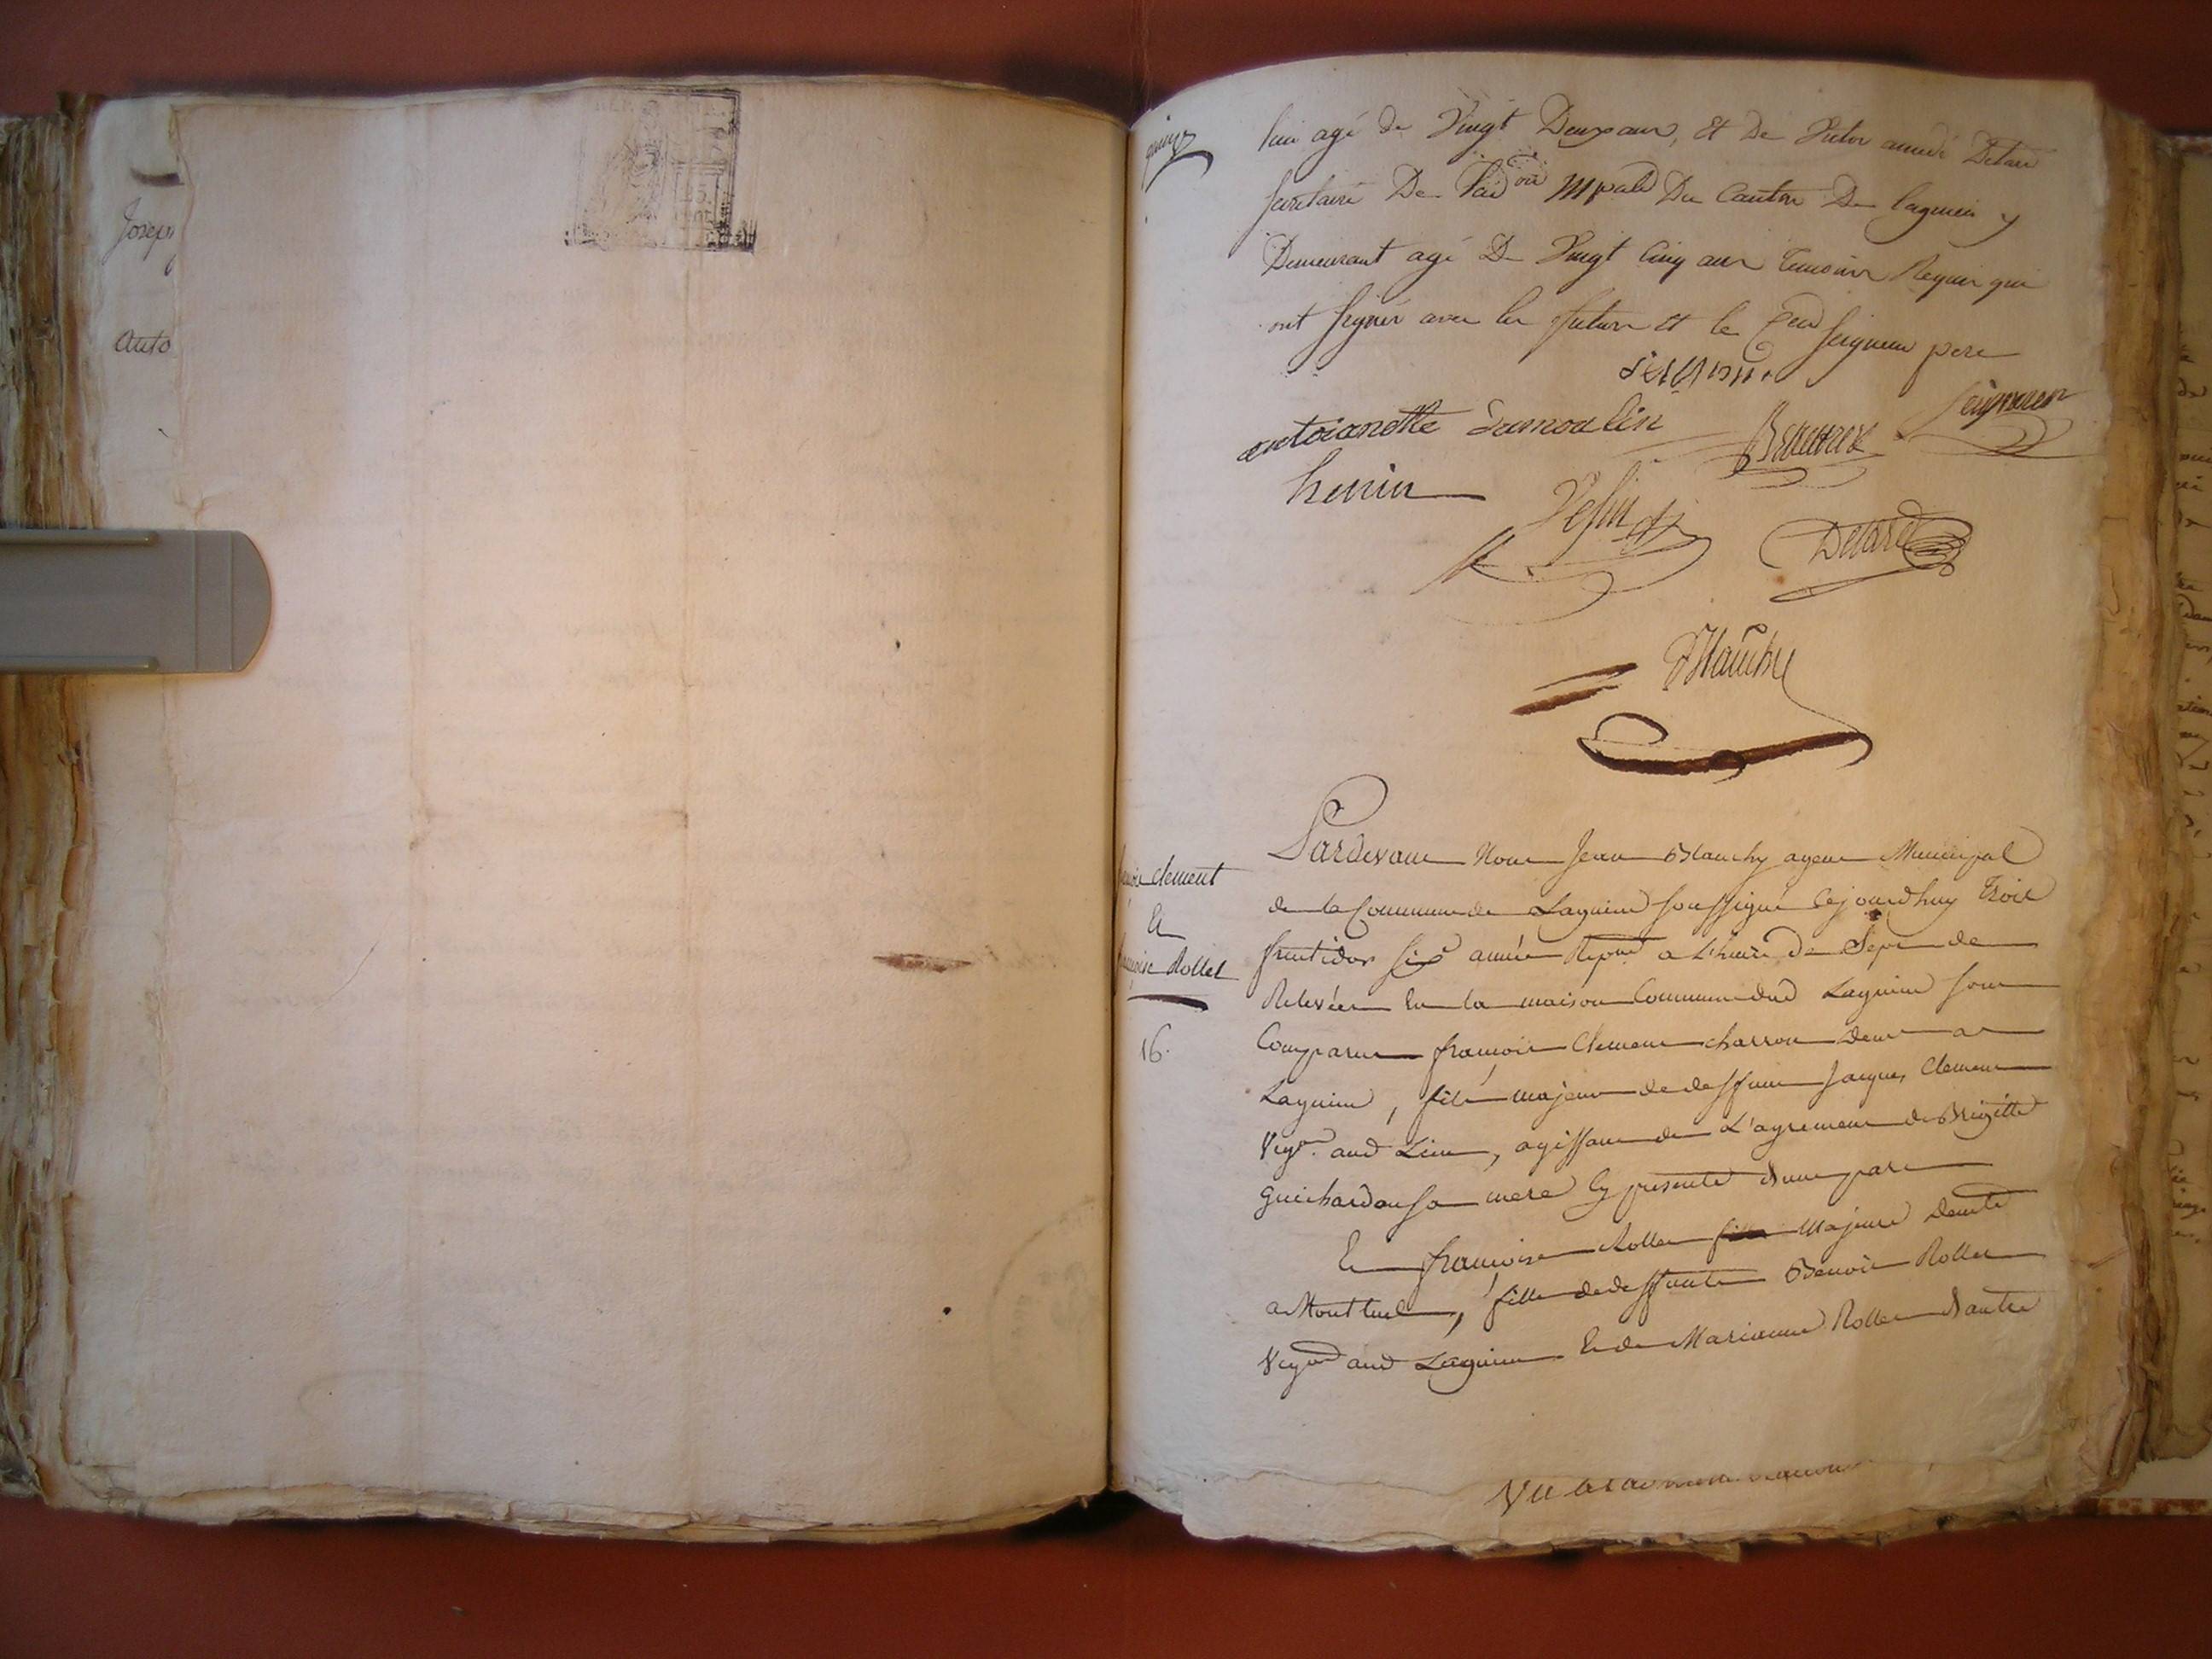 Joseph
Auto
lieu agé de Vingt Deux ans, Et De Victor amedé Detard
Secretaire De L'ad.on Mpale Du Canton De lagnieu y
Demeurant agé De Vingt Cinq ans temoins Requis qui
ont signés avec les futurs et le Cen seigneur pere
antoianette dumoulin
Seigneur
henin
Detard
Blanchy
françois clement
Et
françoise Rollet
16.
Pardevant Nous Jean Blanchy agent Municipal
de la Commune de Lagnieu soussigné Cejourdhuy trois
fructidor six année Repne a L'heure de Sept de
Relevées En la maison Commune dud Lagnieu sont
Comparus françois Clement charron demt a
Lagnieu, fils majeur de deffunt Jacques Clement
Vigon aud Lieu, agissant de L'agrement de Brigitte
Guichardon sa mere Cy presente d'une part
Et françoise Rollet fille Majeure demte
a Montluel, fille de deffunt Benoit Rollet
Vigon aud Lagnieu Et de Marianne Rollet d'autre